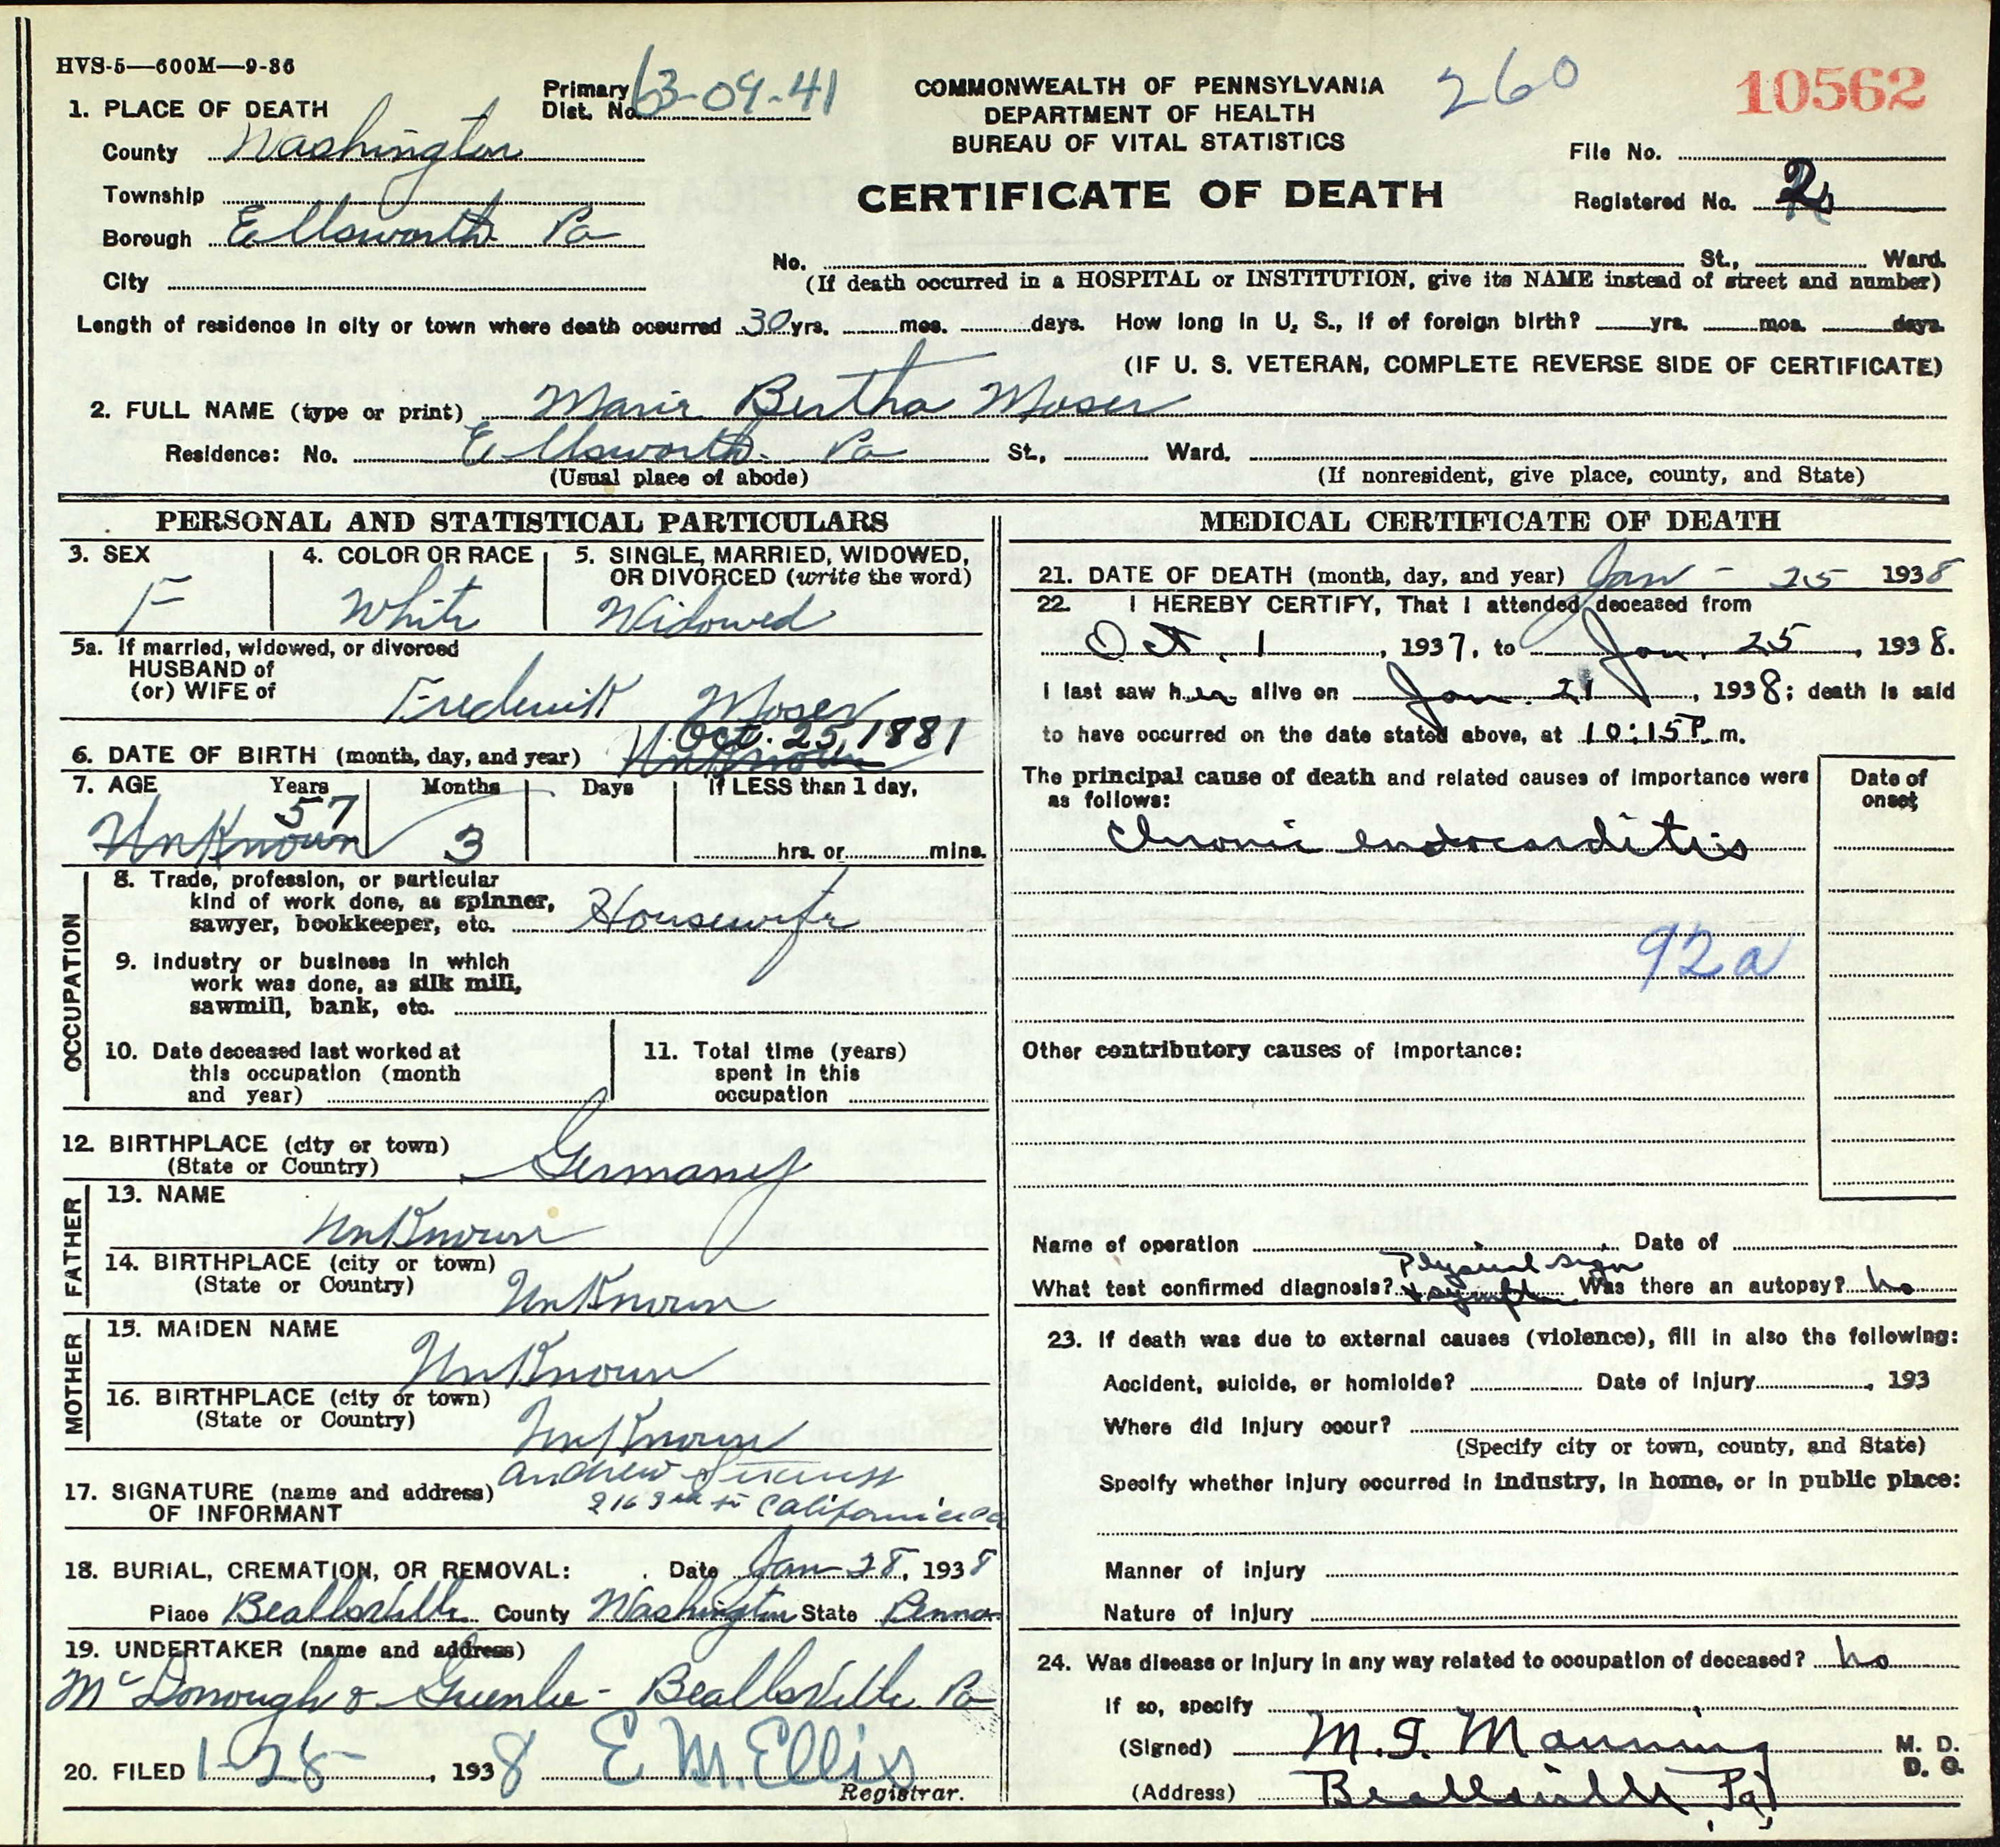 HVS-5—600M—9-36
Primary Dist. No. 63-09-41
COMMONWEALTH OF PENNSYLVANIA
DEPARTMENT OF HEALTH
BUREAU OF VITAL STATISTICS
260
10562
CERTIFICATE OF DEATH
File No.
Registered No. 2
1. PLACE OF DEATH
County Washington
Township
Borough Ellsworth Pa
City
No. St., Ward.
(If death occurred in a HOSPITAL or INSTITUTION, give its NAME instead of street and number)
Length of residence in city or town where death occurred 30 yrs. mos. days. How long in U. S., if of foreign birth? yrs. mos. days.
(IF U. S. VETERAN, COMPLETE REVERSE SIDE OF CERTIFICATE)
2. FULL NAME (type or print) Marie Bertha Moser
Residence: No. Ellsworth Pa St., Ward.
(Usual place of abode) (If nonresident, give place, county, and State)
PERSONAL AND STATISTICAL PARTICULARS
3. SEX
F
4. COLOR OR RACE
White
5. SINGLE, MARRIED, WIDOWED, OR DIVORCED (write the word)
Widowed
5a. If married, widowed, or divorced
HUSBAND of
(or) WIFE of Frederick Moser
Oct. 25, 1881
6. DATE OF BIRTH (month, day, and year) Unknown
7. AGE Years Months Days If LESS than 1 day,
57
Unknown 3 hrs. or mins.
OCCUPATION
8. Trade, profession, or particular
kind of work done, as spinner,
sawyer, bookkeeper, etc. Housewife
9. Industry or business in which
work was done, as silk mill,
sawmill, bank, etc.
10. Date deceased last worked at
this occupation (month
and year)
11. Total time (years)
spent in this
occupation
12. BIRTHPLACE (city or town)
(State or Country) Germany
FATHER
13. NAME
Unknown
14. BIRTHPLACE (city or town)
(State or Country) Unknown
MOTHER
15. MAIDEN NAME
Unknown
16. BIRTHPLACE (city or town)
(State or Country) Unknown
17. SIGNATURE (name and address) Andrew
OF INFORMANT 216 California Pa
18. BURIAL, CREMATION, OR REMOVAL: Date Jan 28, 1938
Place Beallsville County Washington State Penna
19. UNDERTAKER (name and address)
McDonough & Greenlee - Beallsville Pa
20. FILED 1-28-, 1938 E M. Ellis
Registrar.
MEDICAL CERTIFICATE OF DEATH
21. DATE OF DEATH (month, day, and year) Jan - 25 1938
22. I HEREBY CERTIFY, That I attended deceased from
Oct. 1, 1937, to Jan. 25, 1938.
I last saw her alive on Jan. 21, 1938; death is said
to have occurred on the date stated above, at 10:15 P. m.
The principal cause of death and related causes of importance were
as follows:
Date of onset
Chronic endocarditis
92a
Other contributory causes of importance:
Name of operation Date of
Physical sign
What test confirmed diagnosis? & symptom Was there an autopsy? no
23. If death was due to external causes (violence), fill in also the following:
Accident, suicide, or homicide? Date of injury , 193
Where did injury occur?
(Specify city or town, county, and State)
Specify whether injury occurred in industry, in home, or in public place:
Manner of injury
Nature of injury
24. Was disease or injury in any way related to occupation of deceased? no
If so, specify
(Signed) M. I. Manning M. D.
D. O.
(Address) Beallsville Pa,